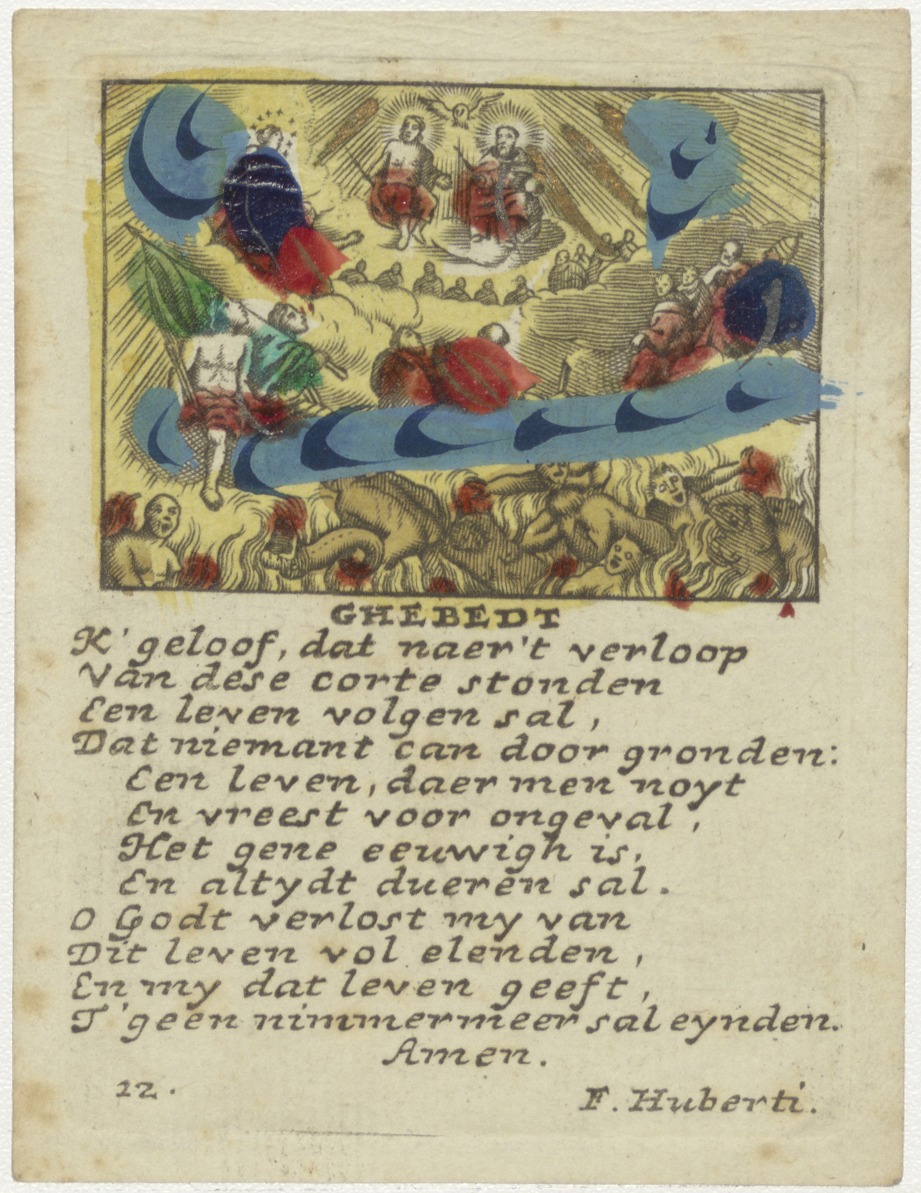 GHEBEDT
K' geloof, dat naer't verloop
Van dese corte stonden
Een leven volgen sal,
Dat niemant can door gronden:
Een leven, daer men noyt
En vreest voor ongeval,
Het gene eeuwigh is,
En altydt dueren sal.
O Godt verlost my van
Dit leven vol elenden,
En my dat leven geeft,
T'geen nimmermeer sal eynden.
Amen.
12.
F. Huberti.